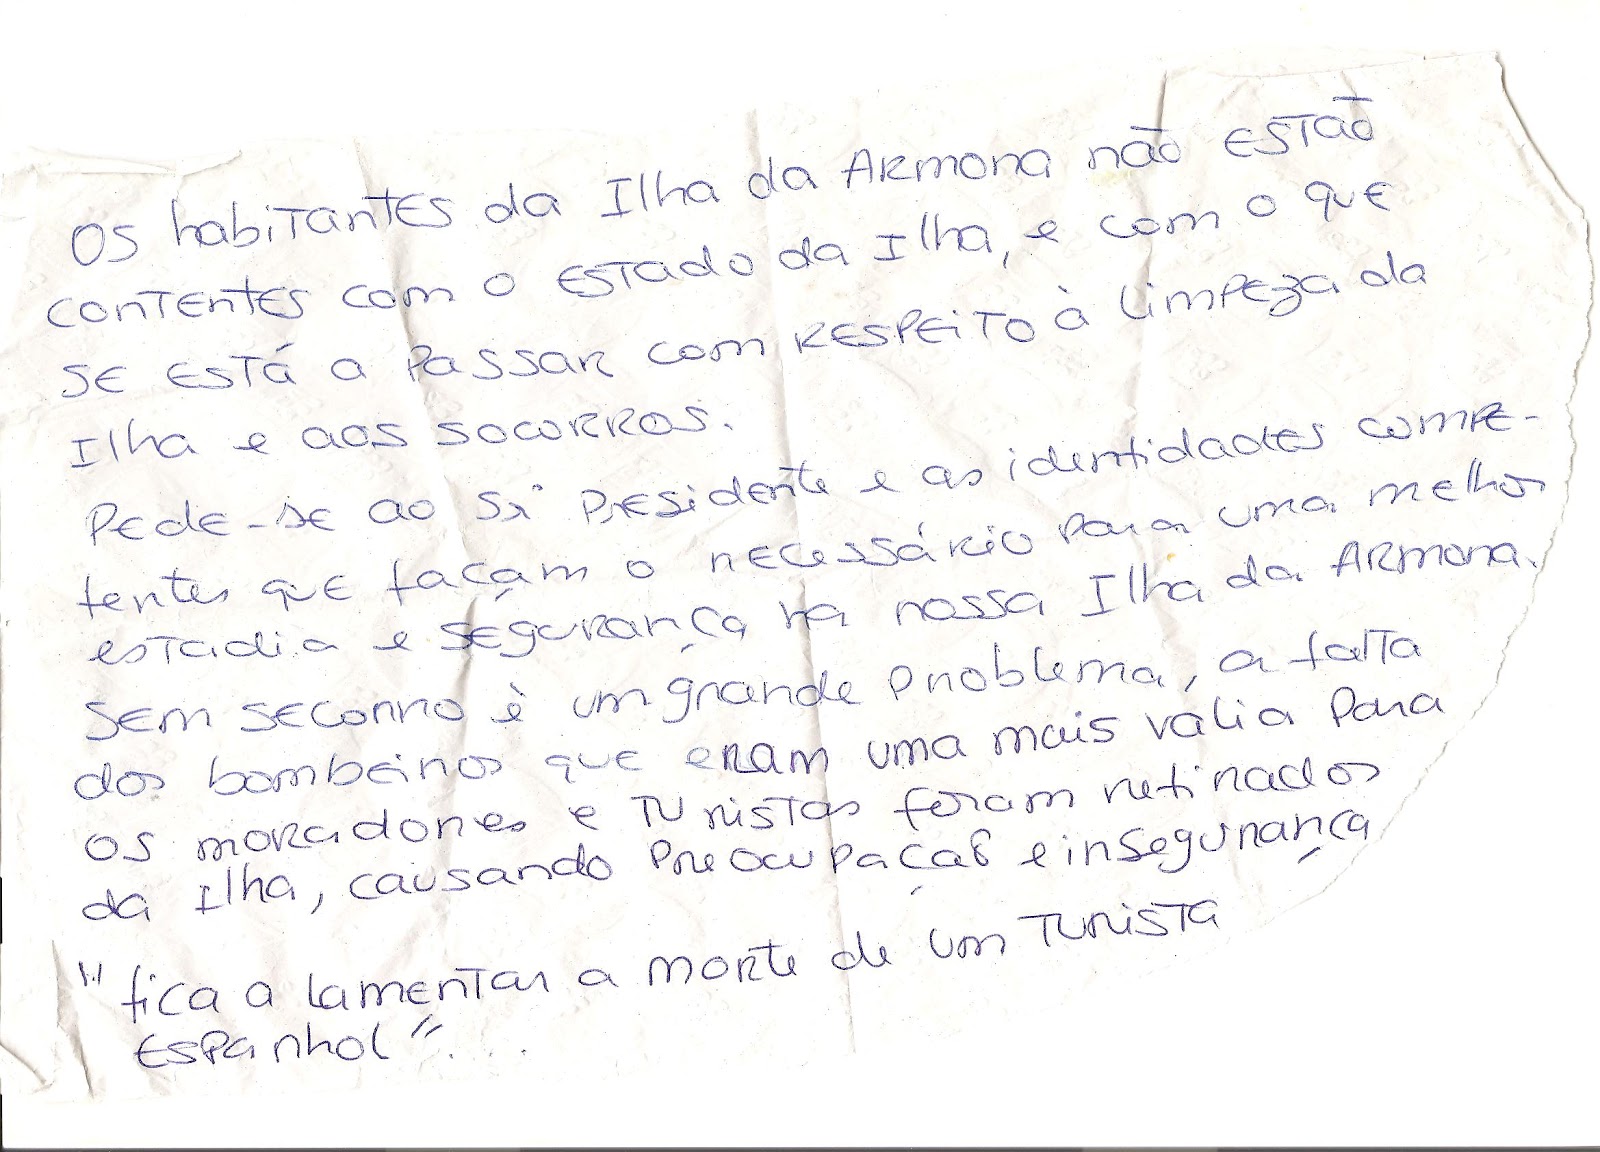 Os habitantes da Ilha da Armona não estão
contentes com o estado da Ilha, e com o que
se está a passar com respeito à limpeza da
Ilha e aos socorros.
Pede-se ao Sr Presidente e as identidades compe-
tentes que façam o necessário para uma melhor
estadia e segurança na nossa Ilha da Armona.
Sem seconro è um grande problema, a falta
dos bombeiros que eram uma mais valia para
os moradores e turistas foram retirados
da Ilha, causando preocupação e insegurança
"fica a lamentar a morte de um turista
espanhol"....